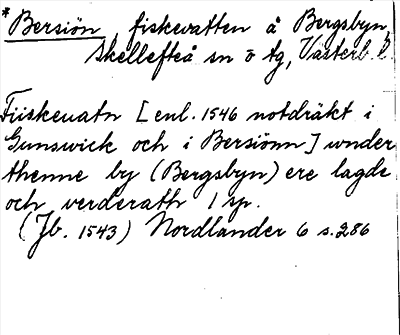 * Bersiön, fiskevatten å Bergsbyn,
Skellefteå sn o tg, Västerb. l.
Fiiskeuatn [enl. 1546 notdräkt i
Gunswick och i Bersiönn] wnder
thenne by (Bergsbyn) ere lagde
och verderath 1 sp.
(Jb. 1543) Nordlander 6 s. 286